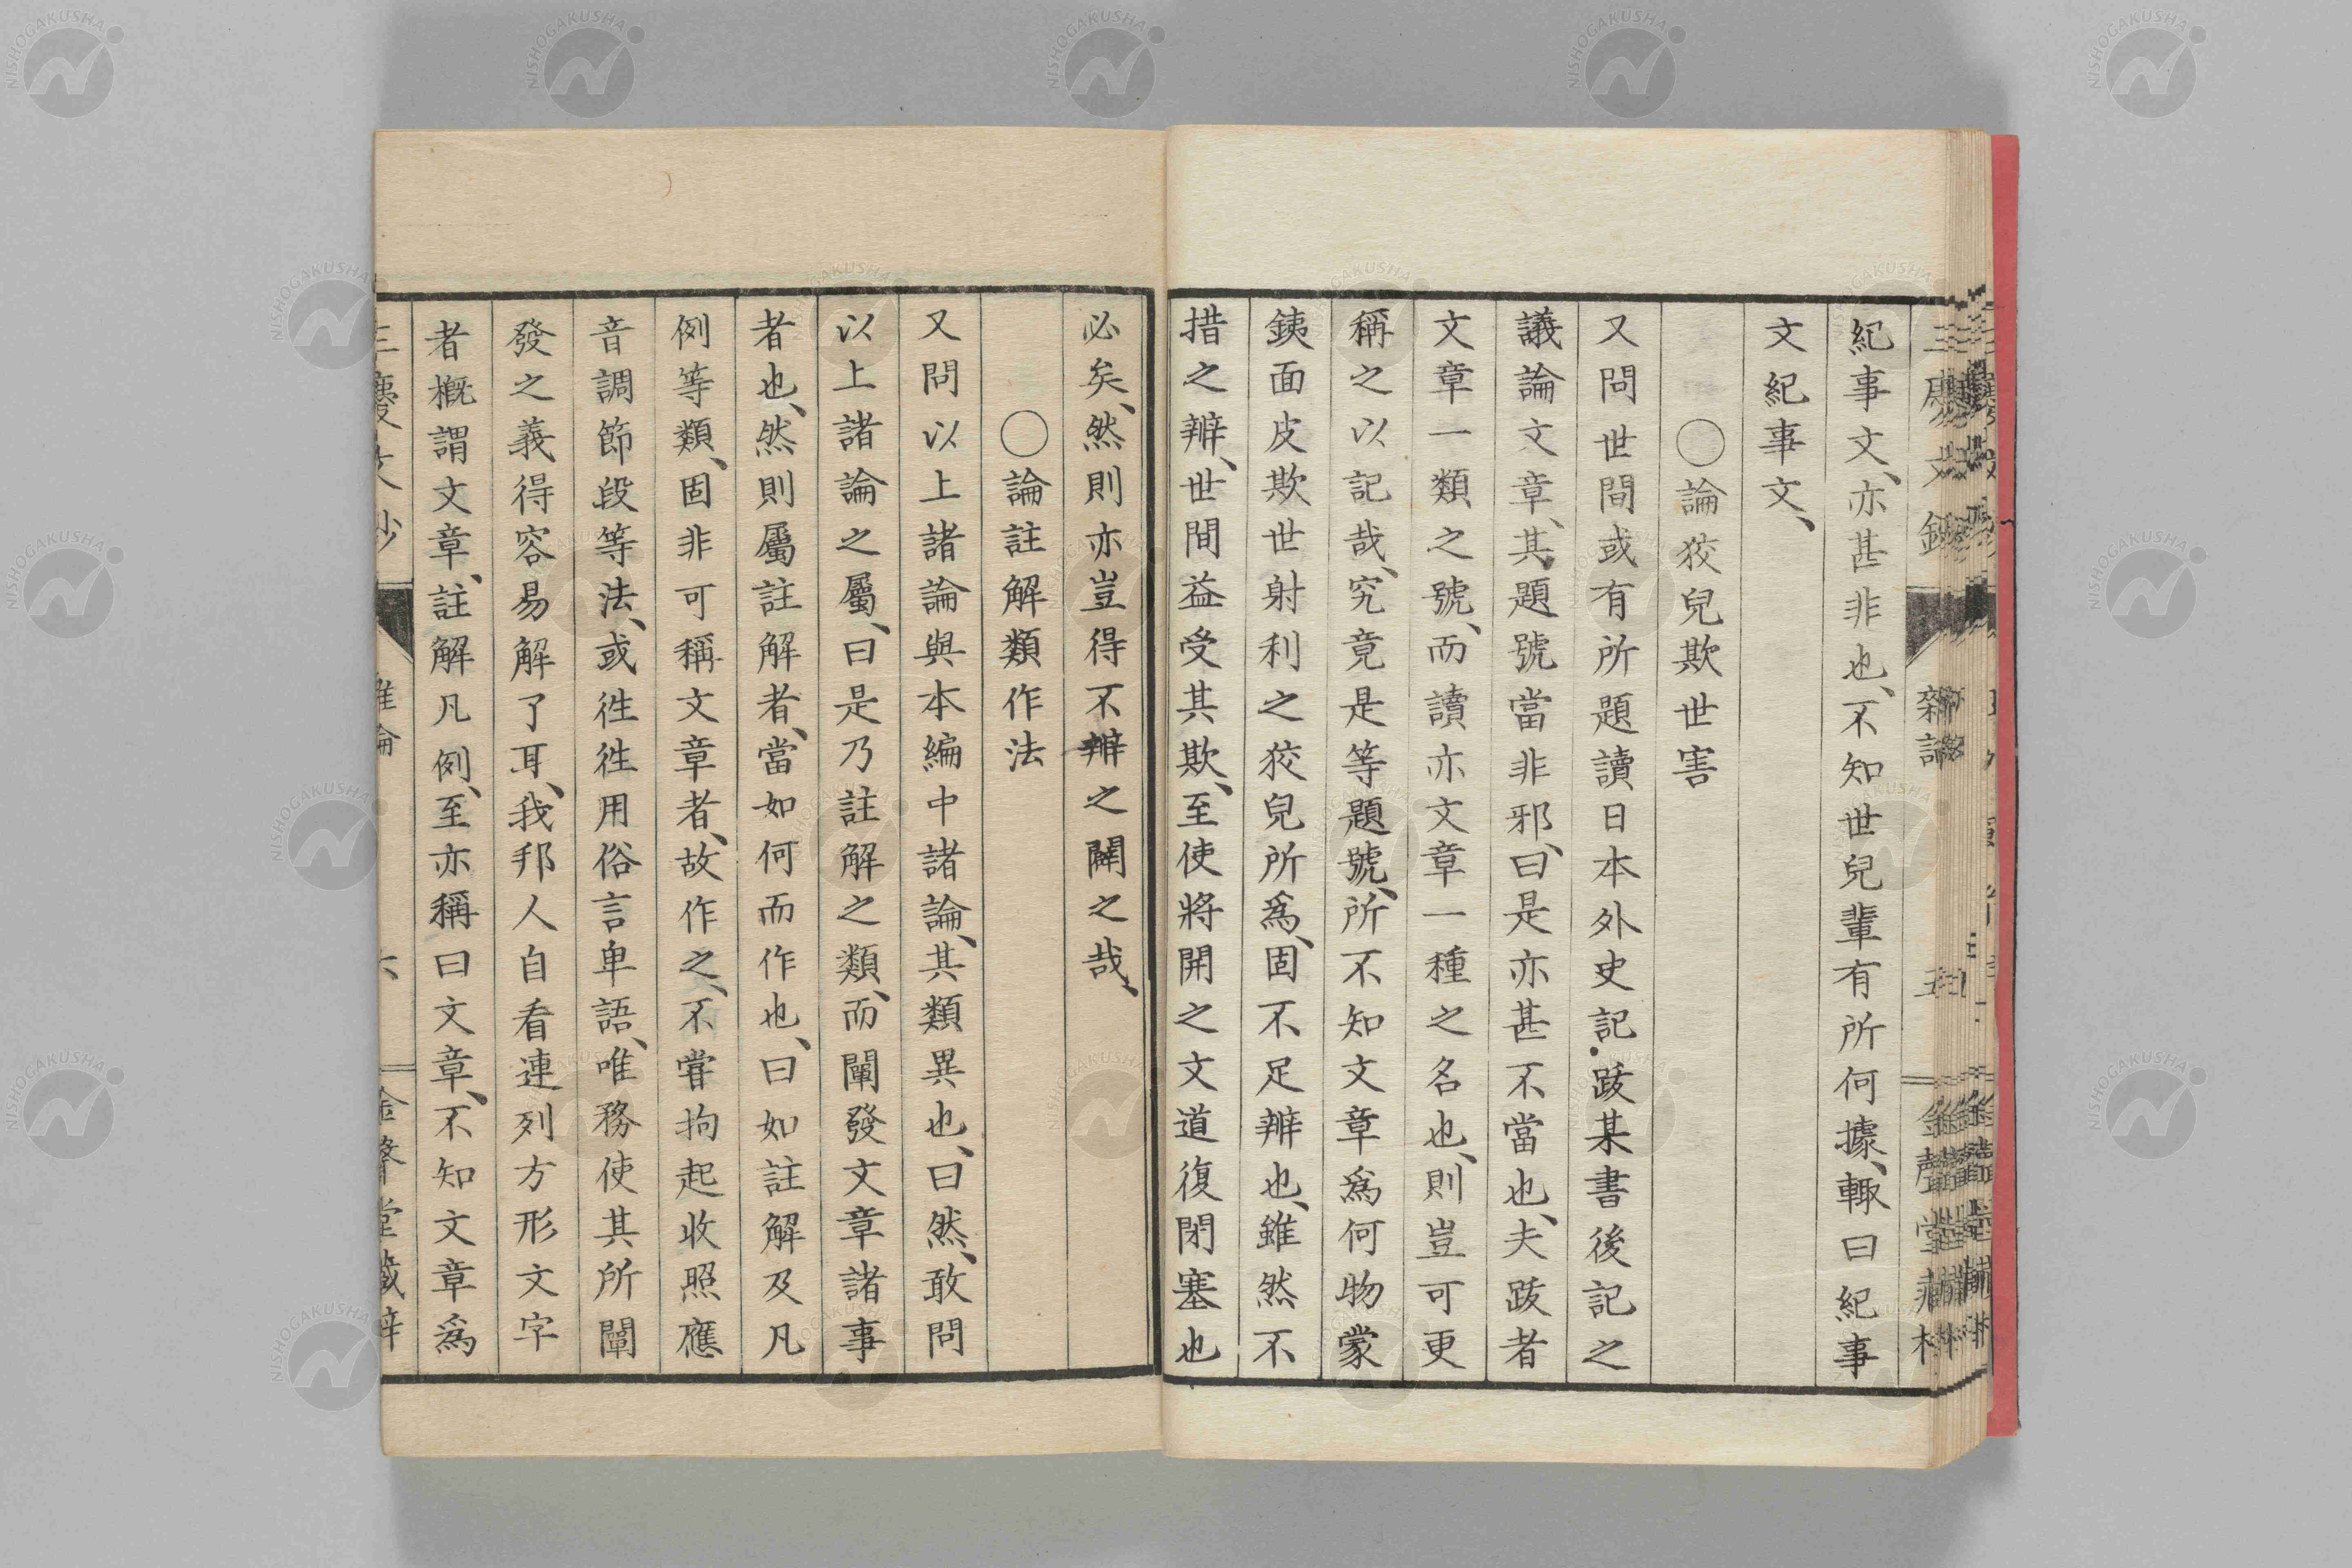 紀事文、亦甚非也、不知世兒輩有所何據、輙曰紀事
文紀事文、
○論狡兒欺世害
又問世間或有所題讀日本外史記・跋某書後記之
議論文章、其題號當非邪、曰是亦甚不當也、夫跋者
文章一類之號、而讀亦文章一種之名也、則豈可更
稱之以記哉、究竟是等題號、所不知文章爲何物蒙
銕面皮欺世射利之狡兒所爲、固不足辨也、雖然不
措之辨、世間益受其欺、至使將開之文道復閉塞也
必矣、然則亦豈得不辨之闢之哉、
○論註解類作法
又問以上諸論與本編中諸論、其類異也、曰然、敢問
以上諸論之屬、曰是乃註解之類、而闡發文章諸事
者也、然則屬註解者、當如何而作也、曰如註解及凡
例等類、固非可稱文章者、故作之、不嘗拘起收照應
音調節段等法、或徃徃用俗言卑語、唯務使其所闡
發之義得容易解了耳、我邦人自看連列方形文字
者概謂文章、註解凡例、至亦稱曰文章、不知文章爲
六